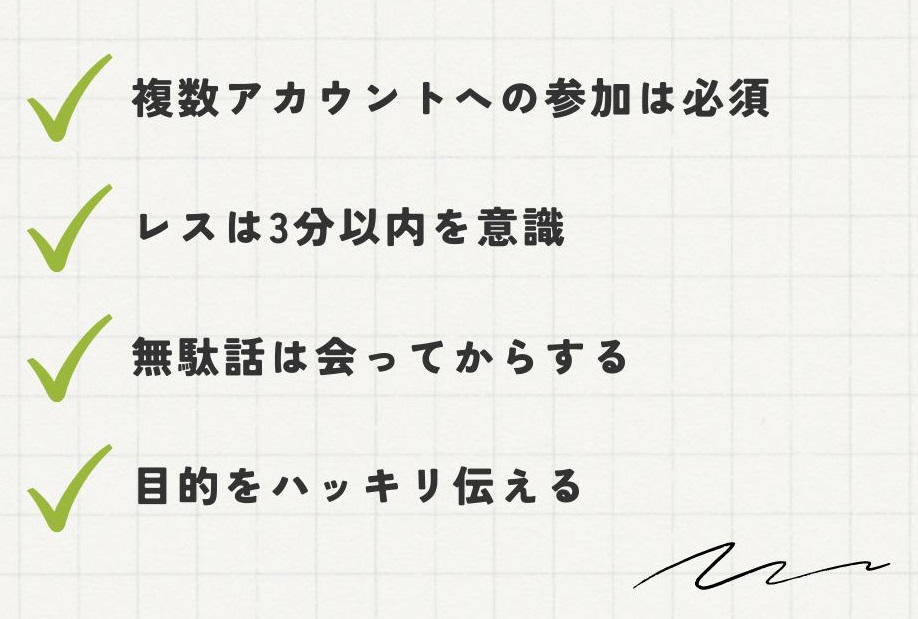 複数アカウントへの参加は必須
レスは3分以内を意識
無駄話は会ってからする
目的をハッキリ伝える